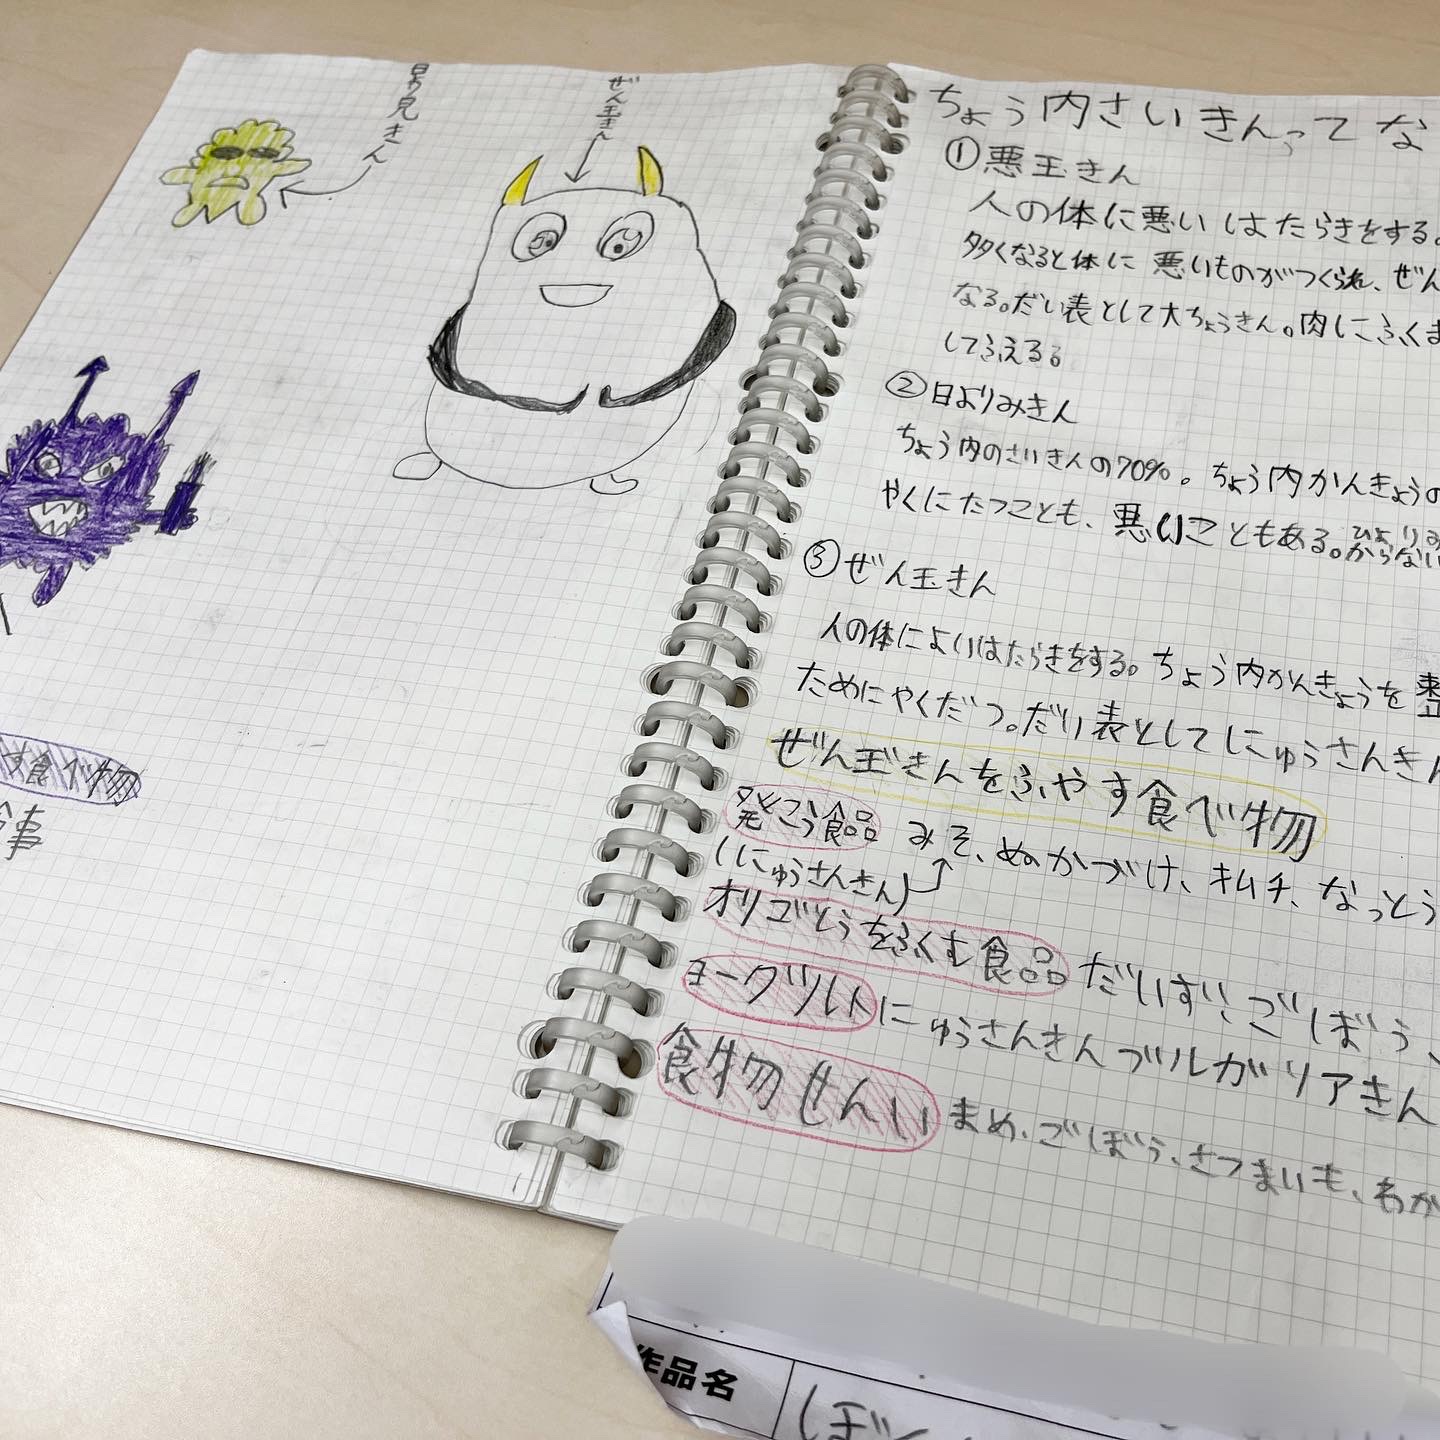 日より見きん
ぜん玉きん
す食べ物
食事
ちょう内さいきんってな
①悪玉きん
人の体に悪いはたらきをする。
多くなると体に悪いものがつくられ、ぜん
なる。だい表として大ちょうきん。肉にふくま
してふえる。
②日よりみきん
ちょう内のさいきんの70%。ちょう内かんきょうの
やくにたつことも、悪いこともある。ひよりみ
からない
③ぜん玉きん
人の体によいはたらきをする。ちょう内かんきょうを整
ためにやくだつ。だい表としてにゅうさんきん
ぜん玉きんをふやす食べ物
発こう食品 みそ、ぬかづけ、キムチ、なっとう
(にゅうさんきん)
オリゴとうをふくむ食品 だいず、ごぼう、
ヨーグルト にゅうさんきん ブルガリアきん
食物せんい まめ、ごぼう、さつまいも、わか
作品名
ぼ